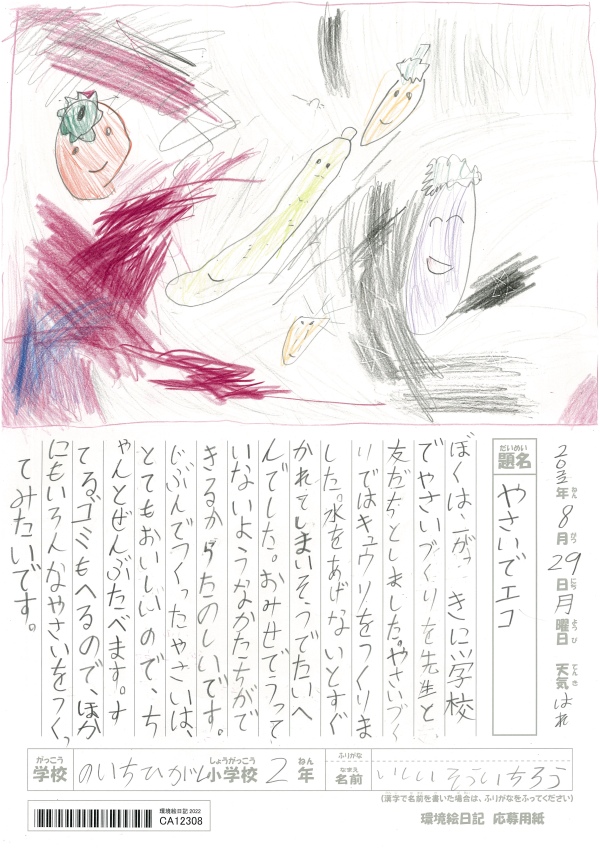 2022年8月29日月曜日 天気はれ
ねん がつ にち ようび てんき
だいめい
題名 やさいでエコ
ぼくは一がっきに学校
でやさいづくりを先生と
友だちとしました。やさいづく
りではキュウリをつくりま
した。水をあげないとすぐ
かれてしまいそうでたいへ
んでした。おみせでうって
いないようなかたちがで
きるからたのしいです。
じぶんでつくったやさいは、
とてもおいしいので、ち
ゃんとぜんぶたべます。す
てるゴミもへるので、ほか
にもいろんなやさいをつくっ
てみたいです。
がっこう しょうがっこう ねん
学校 のいちひがし小学校 2年
ふりがな
なまえ
名前 いしい そういちろう
(漢字で名前を書いた場合は、ふりがなをふってください)
環境絵日記 2022
CA12308
環境絵日記 応募用紙